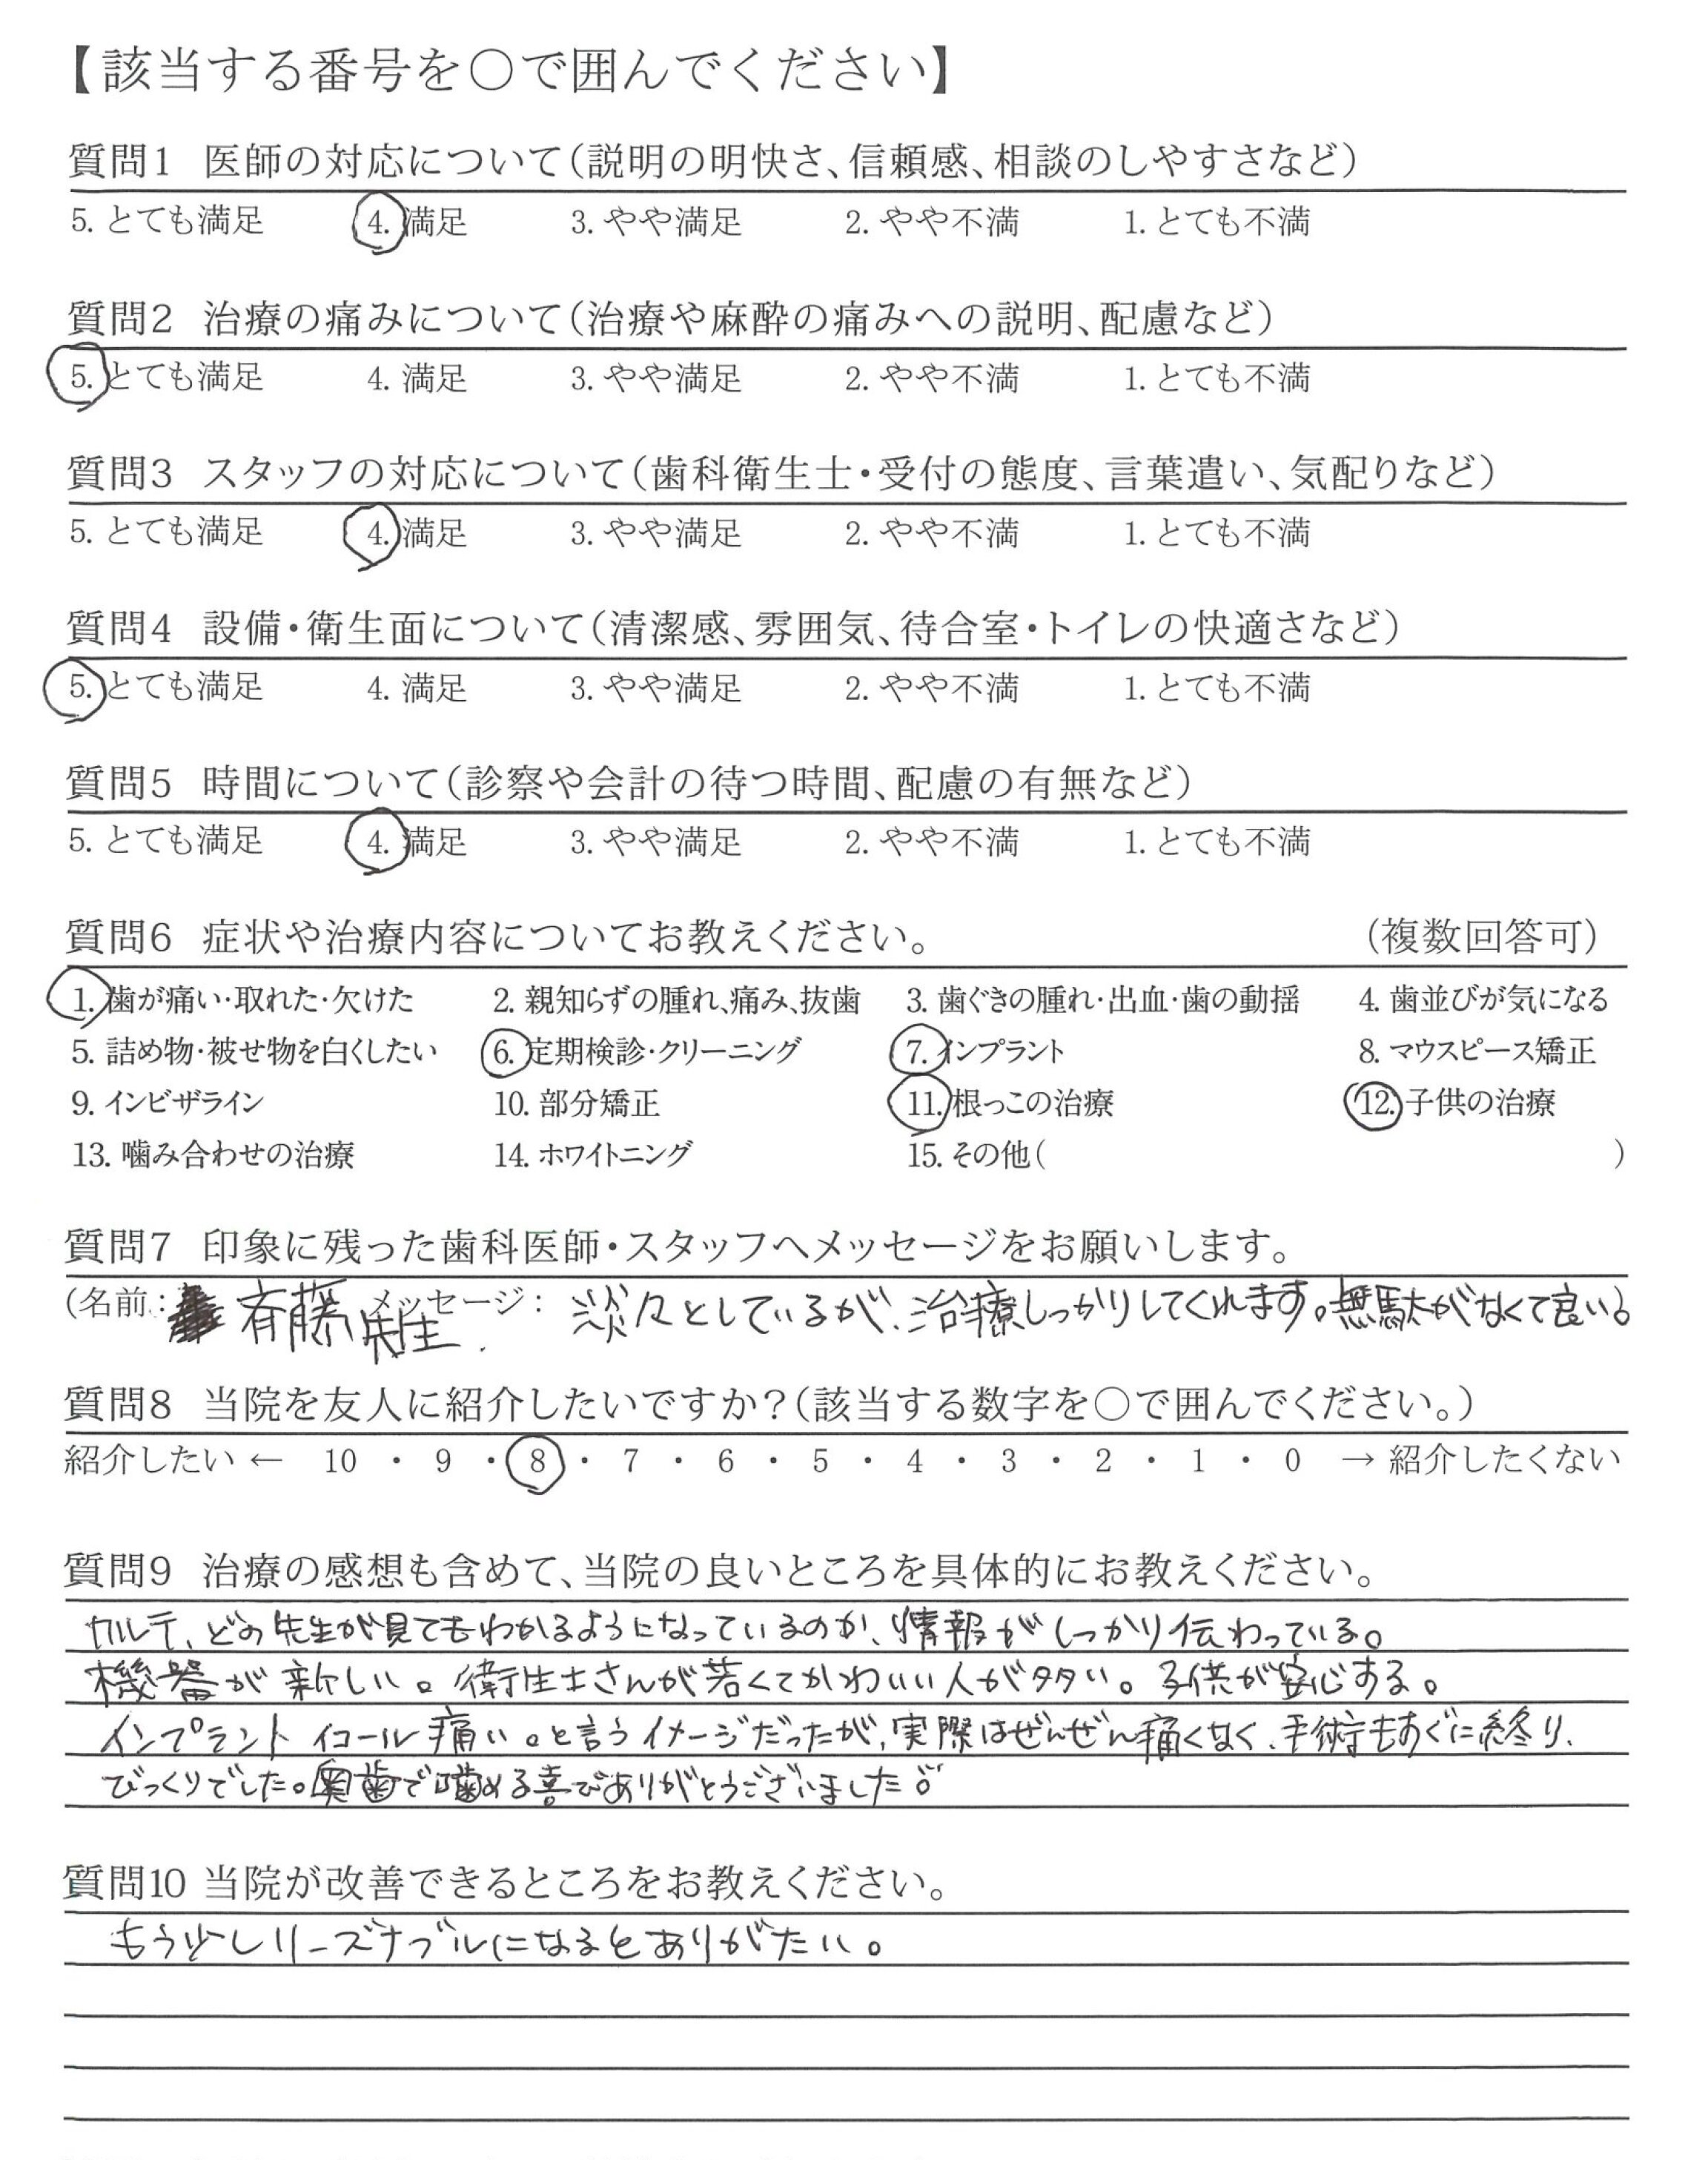 【該当する番号を○で囲んでください】
質問1 医師の対応について(説明の明快さ、信頼感、相談のしやすさなど)
5. とても満足 4. 満足 3. やや満足 2. やや不満 1. とても不満
質問2 治療の痛みについて(治療や麻酔の痛みへの説明、配慮など)
5. とても満足 4. 満足 3. やや満足 2. やや不満 1. とても不満
質問3 スタッフの対応について(歯科衛生士・受付の態度、言葉遣い、気配りなど)
5. とても満足 4. 満足 3. やや満足 2. やや不満 1. とても不満
質問4 設備・衛生面について(清潔感、雰囲気、待合室・トイレの快適さなど)
5. とても満足 4. 満足 3. やや満足 2. やや不満 1. とても不満
質問5 時間について(診察や会計の待つ時間、配慮の有無など)
5. とても満足 4. 満足 3. やや満足 2. やや不満 1. とても不満
質問6 症状や治療内容についてお教えください。 (複数回答可)
1. 歯が痛い・取れた・欠けた 2. 親知らずの腫れ、痛み、抜歯 3. 歯ぐきの腫れ・出血・歯の動揺 4. 歯並びが気になる
5. 詰め物・被せ物を白くしたい 6. 定期検診・クリーニング 7. インプラント 8. マウスピース矯正
9. インビザライン 10. 部分矯正 11. 根っこの治療 12. 子供の治療
13. 噛み合わせの治療 14. ホワイトニング 15. その他( )
質問7 印象に残った歯科医師・スタッフへメッセージをお願いします。
(名前: 斉藤先生. メッセージ: 淡々としているが、治療しっかりしてくれます。無駄がなくて良い。)
質問8 当院を友人に紹介したいですか?(該当する数字を○で囲んでください。)
紹介したい ← 10 ・ 9 ・ 8 ・ 7 ・ 6 ・ 5 ・ 4 ・ 3 ・ 2 ・ 1 ・ 0 → 紹介したくない
質問9 治療の感想も含めて、当院の良いところを具体的にお教えください。
カルテ、どの先生が見てもわかるようになっているのか、情報がしっかり伝わっている。
機器が新しい。衛生士さんが若くてかわいい人が多い。子供が安心する。
インプラント イコール痛い。と言うイメージだったが、実際はぜんぜん痛くなく、手術もすぐに終り、
びっくりでした。奥歯で噛める喜びありがとうございました。
質問10 当院が改善できるところをお教えください。
もう少しリーズナブルになるとありがたい。